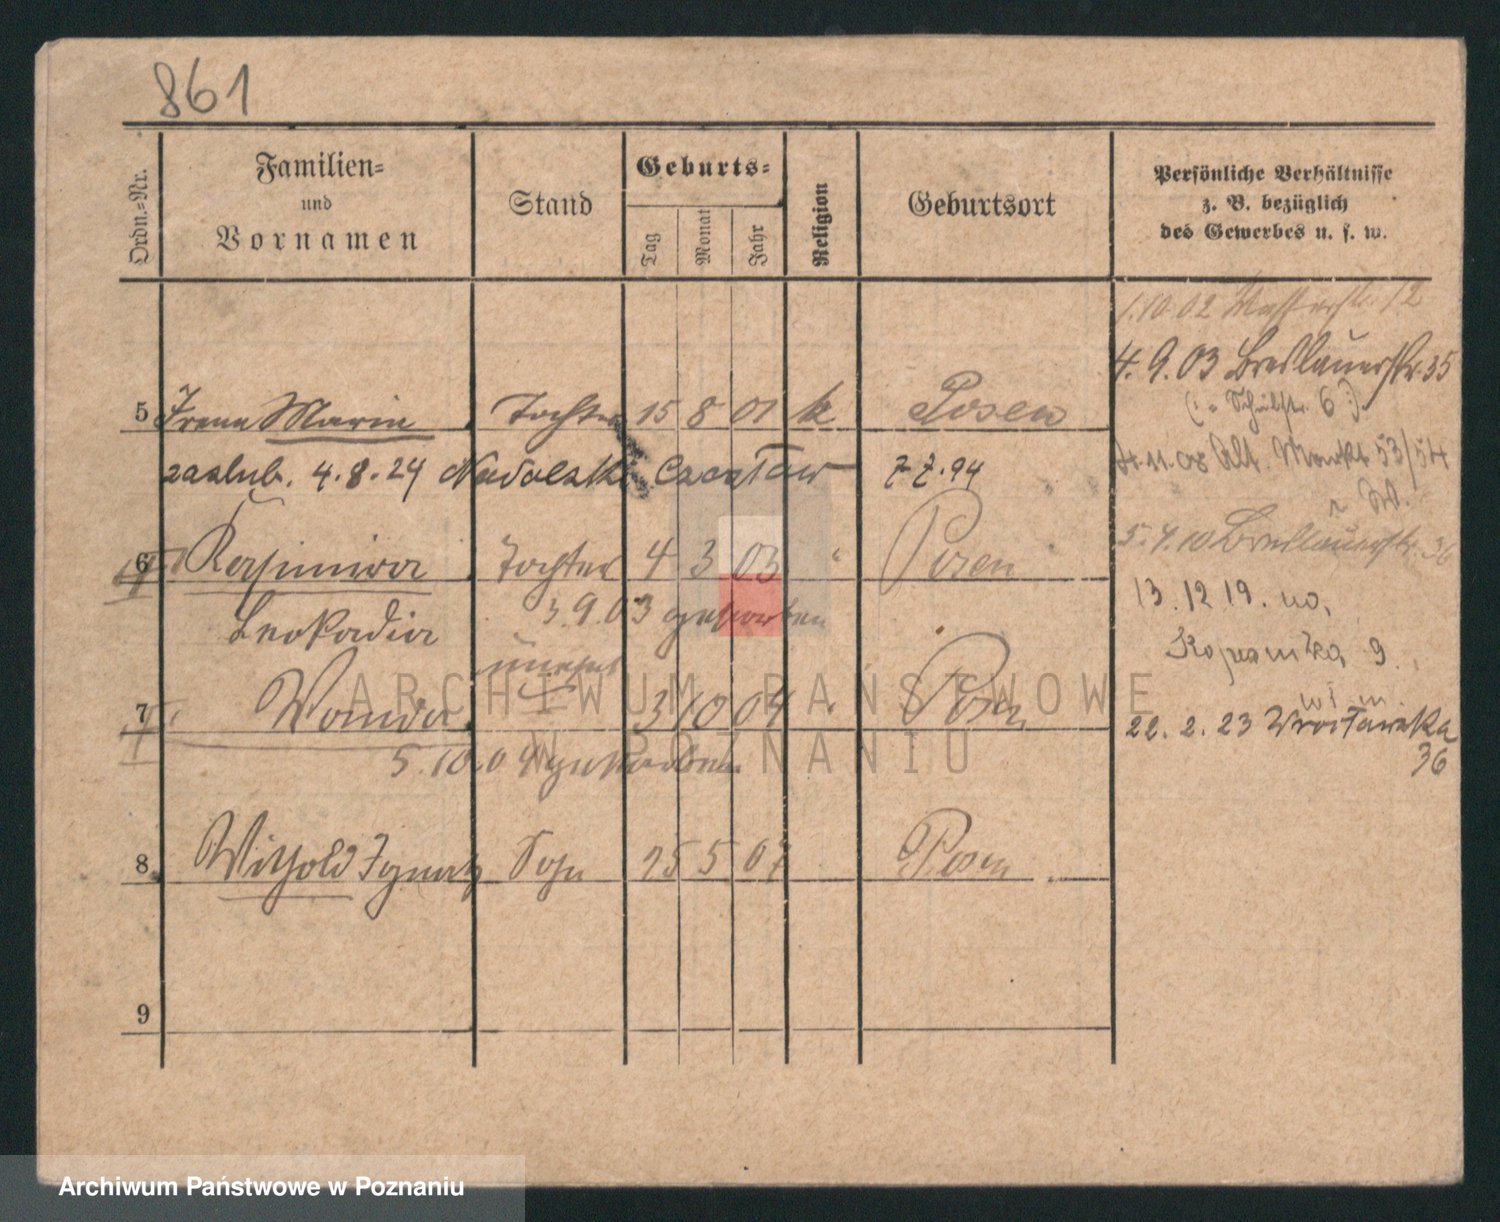 861
Ordn.=Nr.
Familien=
und
Vornamen
Stand
Geburts=
Tag
Monat
Jahr
Religion
Geburtsort
Persönliche Verhältnisse
z. B. bezüglich
des Gewerbes u. s. w.
1.10.02 12
4.9.03 Breslauerstr. 35
6
5 Irena Maria Tochter 15 8 01 k Posen
zaślub. 4.8.24 Nadolski Czesław 7 7.94
4.11.08 Alt. Markt 53/54
6 Kasimira Tochter 4 3 03 " Posen
5.4.10 Breslauerstr. 36
Leokadia 3.9.03 gestorben
13.12.19.
9
7 Wanda 3 10 04 " Posen
22.2.23 Wrocławska
36
5.10.04 gestorben
8 Withold Ignatz Sohn 15 5 07 Posen
9
ARCHIWUM PAŃSTWOWE
W POZNANIU
Archiwum Państwowe w Poznaniu